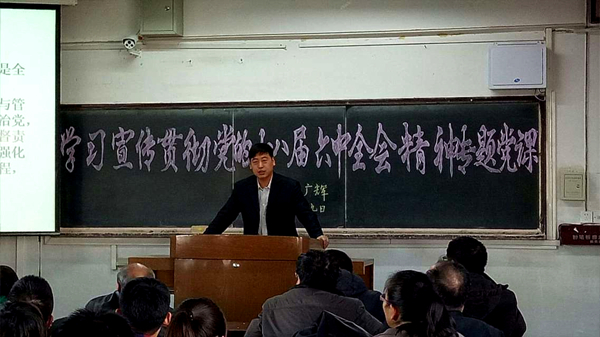 是全
与管
治党,
督责
强化
程,
学习宣传贯彻党的十八届六中全会精神专题党课
广辉
九日